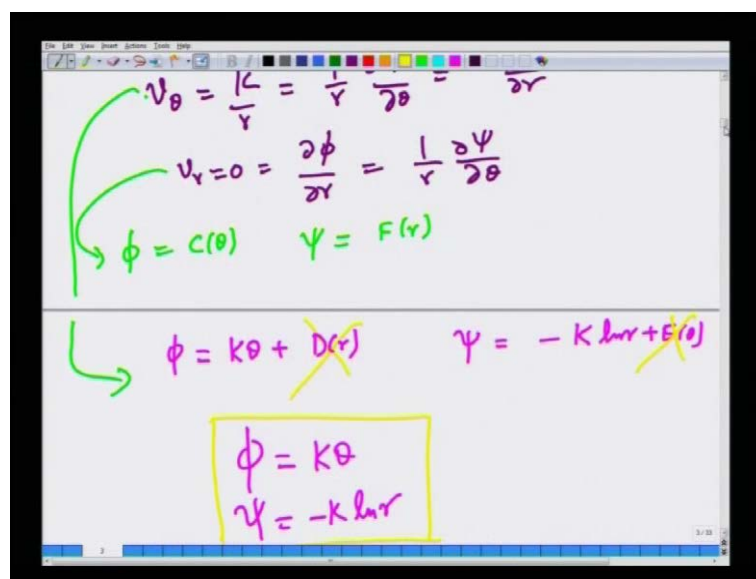 File Edit View Insert Actions Tools Help
V_θ = K/r = 1/r ∂θ = ∂r
V_r = 0 = ∂ϕ/∂r = 1/r ∂Ψ/∂θ
ϕ = C(θ) Ψ = F(r)
ϕ = Kθ + D(r) Ψ = - K ln r + E(θ)
ϕ = Kθ
Ψ = -K ln r
3